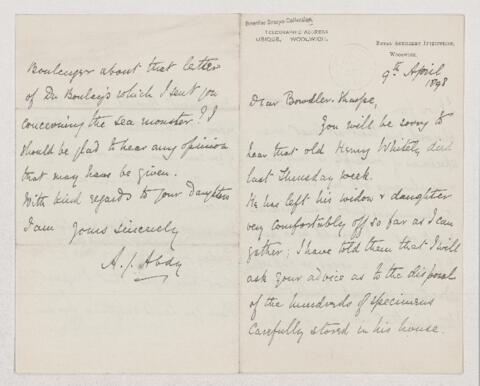 Bowdler Sharpe Collection.
TELEGRAPHIC ADDRESS
UBIQUE, WOOLWICH.
ROYAL ARTILLERY INSTITUTION,
WOOLWICH.
9th April
1898
Dear Bowdler-Sharpe,
You will be sorry to
hear that old Henry Whitely died
last Thursday week.
He has left his widow & daughter
very comfortably off so far as I can
gather; I have told them that I will
ask your advice as to the disposal
of the hundreds of specimens
carefully stored in his house.
Boulenger about that letter
of Du Boulay's which I sent you
concerning the sea monster? I
should be glad to hear any opinion
that may have be given.
With kind regards to your Daughters
I am yours sincerely
A. J. Abdy